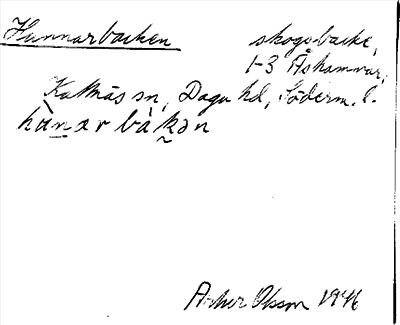 Hunnarbacken skogsbacke,
1-3 Åshammar,
Kattnäs sn, Daga hd, Söderm. l.
hùṉar bàḵən
Arthur Olsson 1946